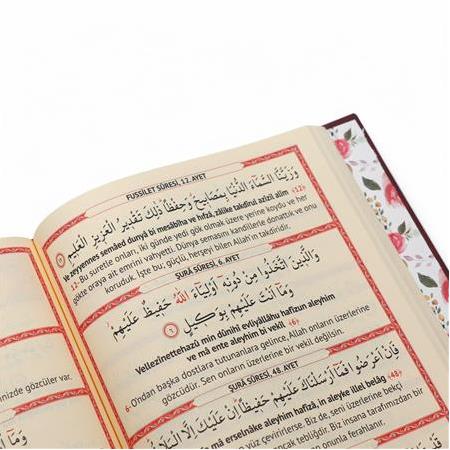 FUSSİLET SÛRESİ, 12. AYET
وَزَيَّنَّا السَّمَاءَ الدُّنْيَا بِمَصَابِيحَ وَحِفْظاً ذٰلِكَ تَقْدِيرُ الْعَزِيزِ الْعَلِيمِ
Ve zeyyennes semâed dunyâ bi mesâbîha ve hıfzâ, zâlike takdîrul azîzil alîm «12»
12- Bu suretle onları, iki günde yedi gök olmak üzere yerine koydu ve her
gökte oraya ait emrini vahyetti. Dünya semasını kandillerle donattık ve onu
koruduk. İşte bu; güçlü, herşeyi bilen Allah'ın takdiridir.
ŞURA SÛRESİ, 6. AYET
وَالَّذِينَ اتَّخَذُوا مِنْ دُونِهِ أَوْلِيَاءَ اللّٰهُ حَفِيظٌ عَلَيْهِمْ
وَمَا أَنْتَ عَلَيْهِمْ بِوَكِيلٍ
Vellezînettehazû min dûnihî evliyâllâhu hafîzun aleyhim
ve mâ ente aleyhim bi vekîl «6»
6- O'ndan başka dostlara tutunanlara gelince, Allah onların üzerlerine
gözcüdür. Sen onların üzerlerine bir vekil değilsin.
ŞURÂ SÛRESİ, 48. AYET
فَاِنْ اَعْرَضُوا فَمَا اَرْسَلْنَاكَ عَلَيْهِمْ حَفِيظاً اِنْ عَلَيْكَ اِلَّا الْبَلَاغُ
mâ erselnâke aleyhim hafîzâ, in aleyke illel belâg «48»
yüz çevirirlerse. Biz de, seni üzerlerine bekçi
ancak tebliğdir. Biz insana tarafımızdan bir
onunla ferahlanır.
nizde gözcüler var.
وَمَا